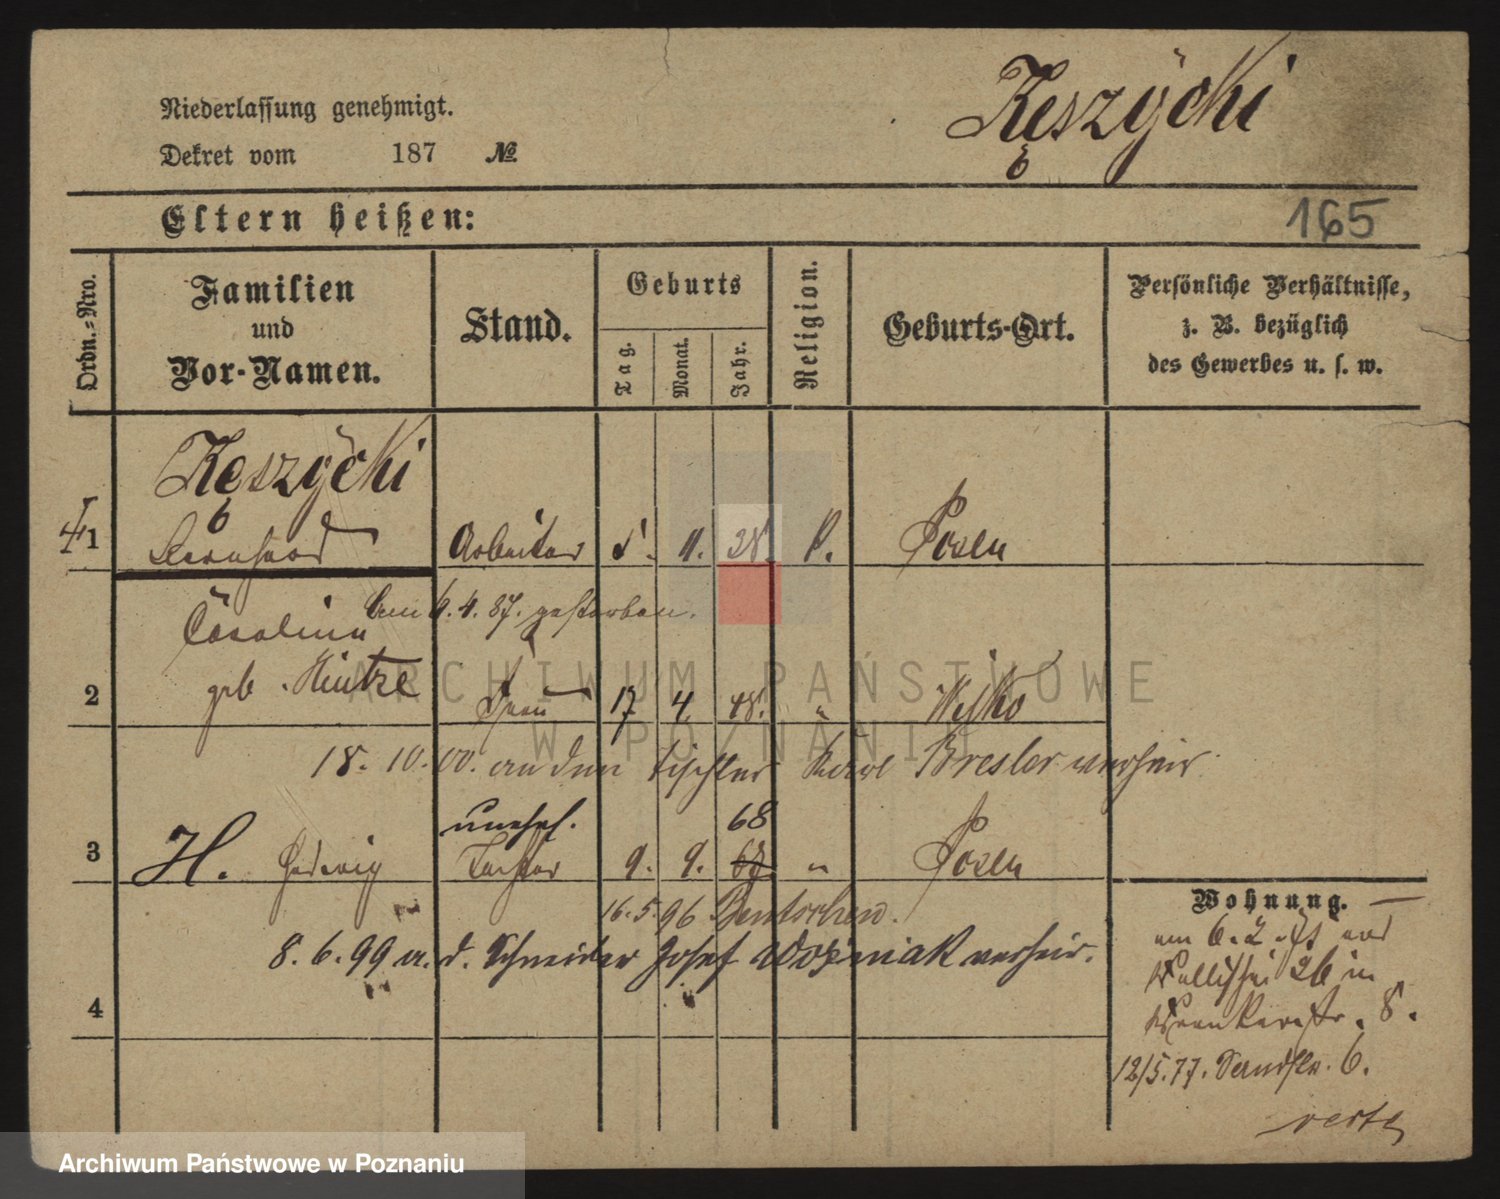 Niederlassung genehmigt.
Dekret vom 187 №
Kęszycki
165
Eltern heißen:
Ordn.-Nro.
Familien
und
Vor-Namen.
Stand.
Geburts
Tag.
Monat.
Jahr.
Religion.
Geburts-Ort.
Persönliche Verhältnisse,
z. B. bezüglich
des Gewerbes u. s. w.
Kęszycki
1 Bernhard Arbeiter 28. Posen
am 6. 4. 87. gestorben.
geb. Hintze
2 Frau 17 4. 48. "
18. 10. 00. an den Tischler Karl Bresler verheir.
unehel. 68
3 H. Hedwig Tochter 9. 9. 67 " Posen
16. 5. 96 Bentschen.
8. 6. 99 a. d. Schneider Josef Woźniak verheir.
4
Wohnung.
am 6. 2. 75 von
Wallischei 26 in
8.
12/5. 77. Sandstr. 6.
verte
ARCHIWUM PAŃSTWOWE
W POZNANIU
Archiwum Państwowe w Poznaniu